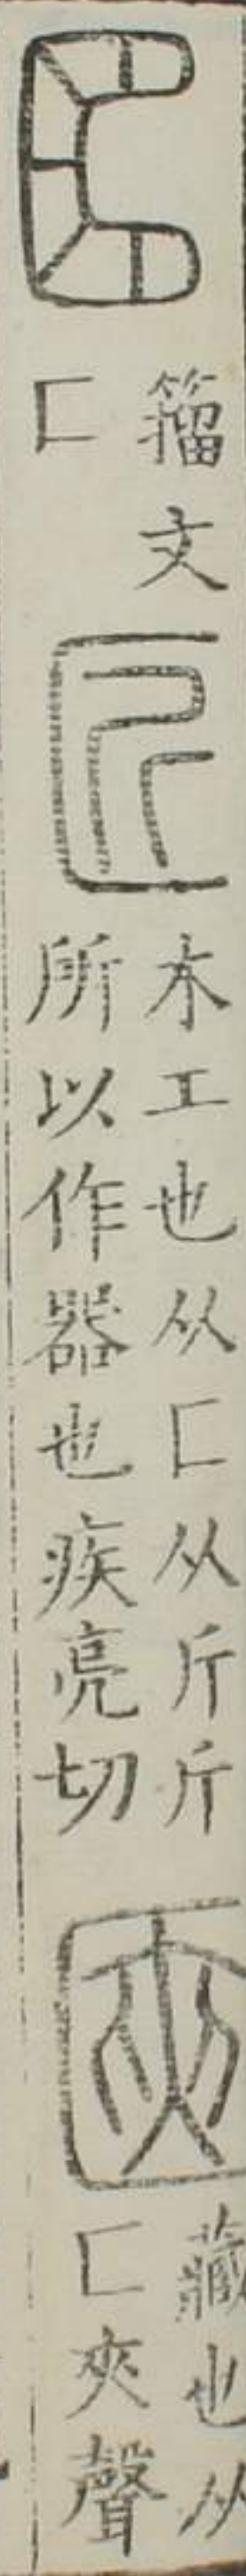 籀文
匚
木工也从匚从斤斤
所以作器也疾亮切
藏也从
匚夾聲